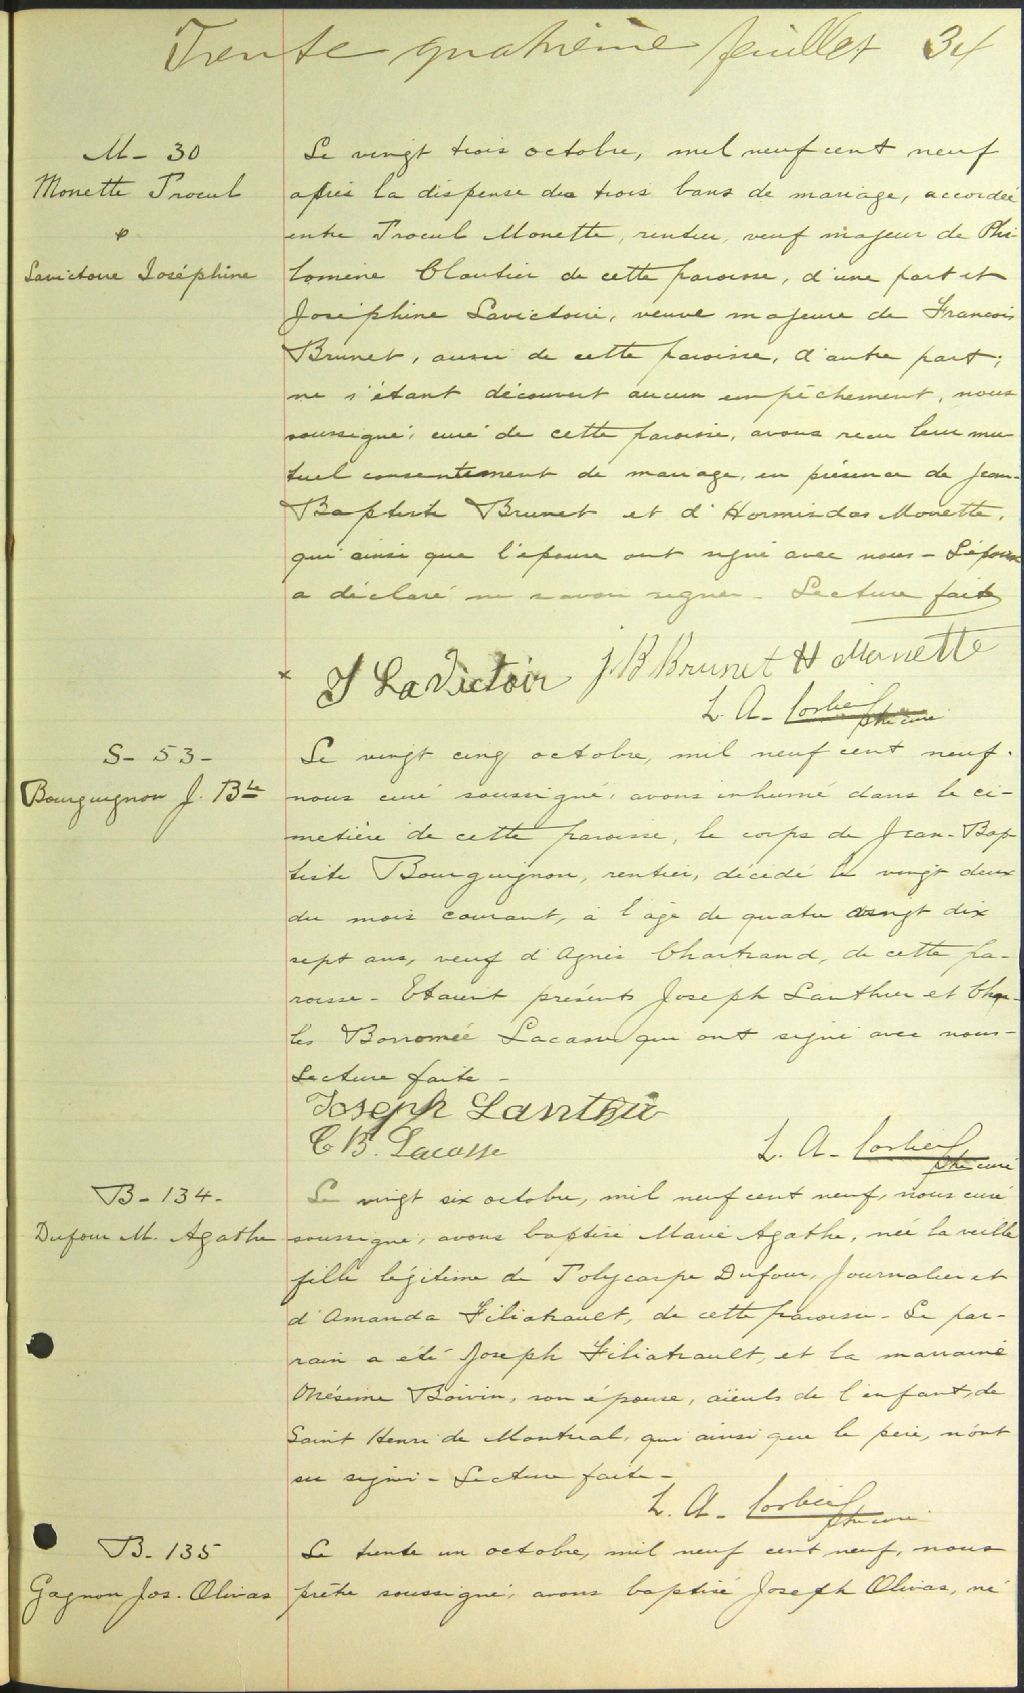 Trente quatrième feuillet 34
M- 30
Monette Procul
&
Lavictoire Joséphine
Le vingt trois octobre, mil neuf cent neuf
après la dispense des trois bans de mariage, accordée
entre Procul Monette, rentier, veuf majeur de Phi-
lomène Cloutier de cette paroisse, d'une part et
Joséphine Lavictoire, veuve majeure de François
Brunet, aussi de cette paroisse, d'autre part;
ne s'étant découvert aucun empêchement, nous
soussigné, curé de cette paroisse, avons reçu leur mu-
tuel consentement de mariage, en présence de Jean-
Baptiste Brunet et d'Hormisdas Monette,
qui ainsi que l'épouse ont signé avec nous - L'époux
a déclaré ne savoir signer - Lecture faite
x J LaVictoir J B Brunet H Monette
L. A. Corbeil ptre curé
S- 53-
Bourguignon J. Bte
Le vingt cinq octobre, mil neuf cent neuf.
nous curé soussigné, avons inhumé dans le ci-
metière de cette paroisse, le corps de Jean-Bap-
tiste Bourguignon, rentier, décédé le vingt deux
du mois courant, à l'âge de quatre vingt dix
sept ans, veuf d'Agnès Chartrand, de cette pa-
roisse - Etaient présents Joseph Lanthier et Char-
les Borromée Lacasse qui ont signé avec nous -
Lecture faite -
Joseph Lanthier
C B. Lacasse
L. A. Corbeil ptre curé
B- 134-
Dufour M. Agathe
Le vingt six octobre, mil neuf cent neuf, nous curé
soussigné, avons baptisé Marie Agathe, née la veille
fille légitime de Polycarpe Dufour, Journalier et
d'Amanda Filiatrault, de cette paroisse - Le par-
rain a été Joseph Filiatrault, et la marraine
Onésime Boivin, son épouse, aïeuls de l'enfant, de
Saint Henri de Montréal, qui ainsi que le père, n'ont
su signer - Lecture faite -
L. A. Corbeil ptre curé
B- 135
Gagnon Jos. Olivas
Le trente un octobre, mil neuf cent neuf, nous
prêtre soussigné, avons baptisé Joseph Olivas, né